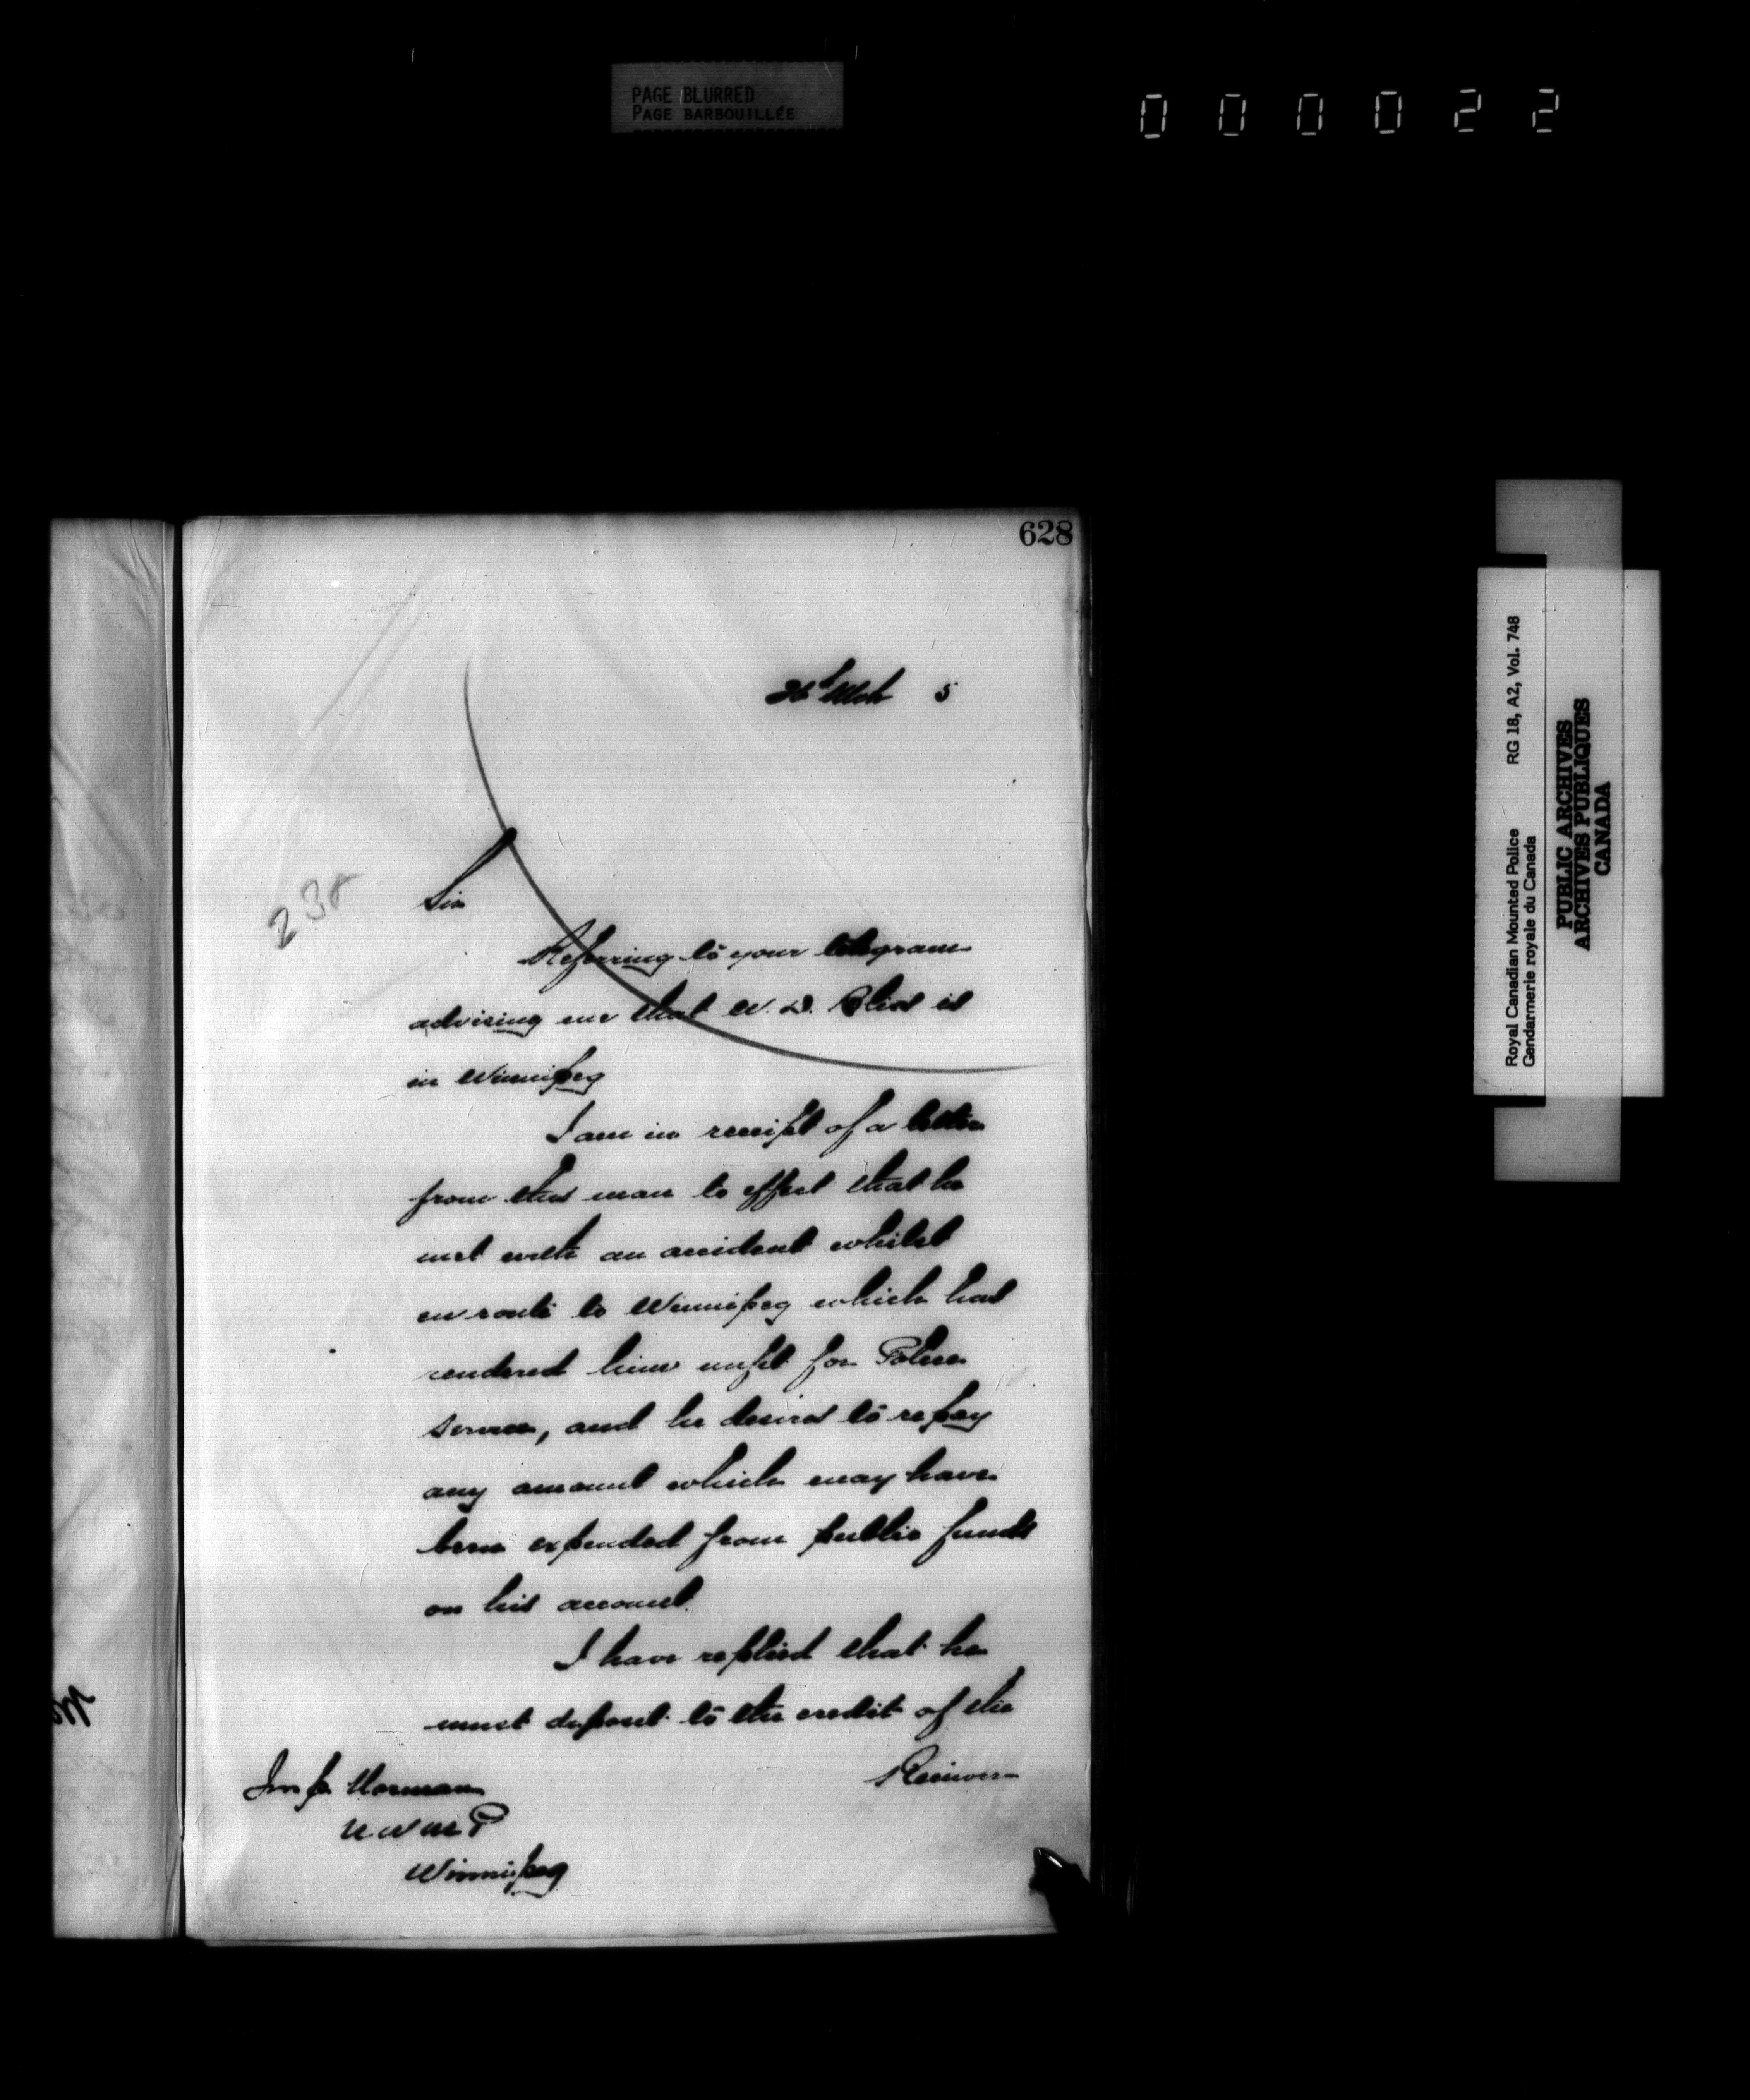 PAGE BLURRED
PAGE BARBOUILLÉE
000022
628
26th Mch 5
238
Sir
Referring to your telegram
advising me that W. D. Blias is
in Winnipeg
I am in receipt of a letter
from this man to effect that he
met with an accident whilst
en route to Winnipeg which has
rendered him unfit for Police
service, and he desires to repay
any amount which may have
been expended from public funds
on his account.
I have replied that he
must deposit to the credit of the
Receiver
Insp. Norman
N W M P
Winnipeg
Royal Canadian Mounted Police RG 18, A2, Vol. 748
Gendarmerie royale du Canada
PUBLIC ARCHIVES
ARCHIVES PUBLIQUES
CANADA